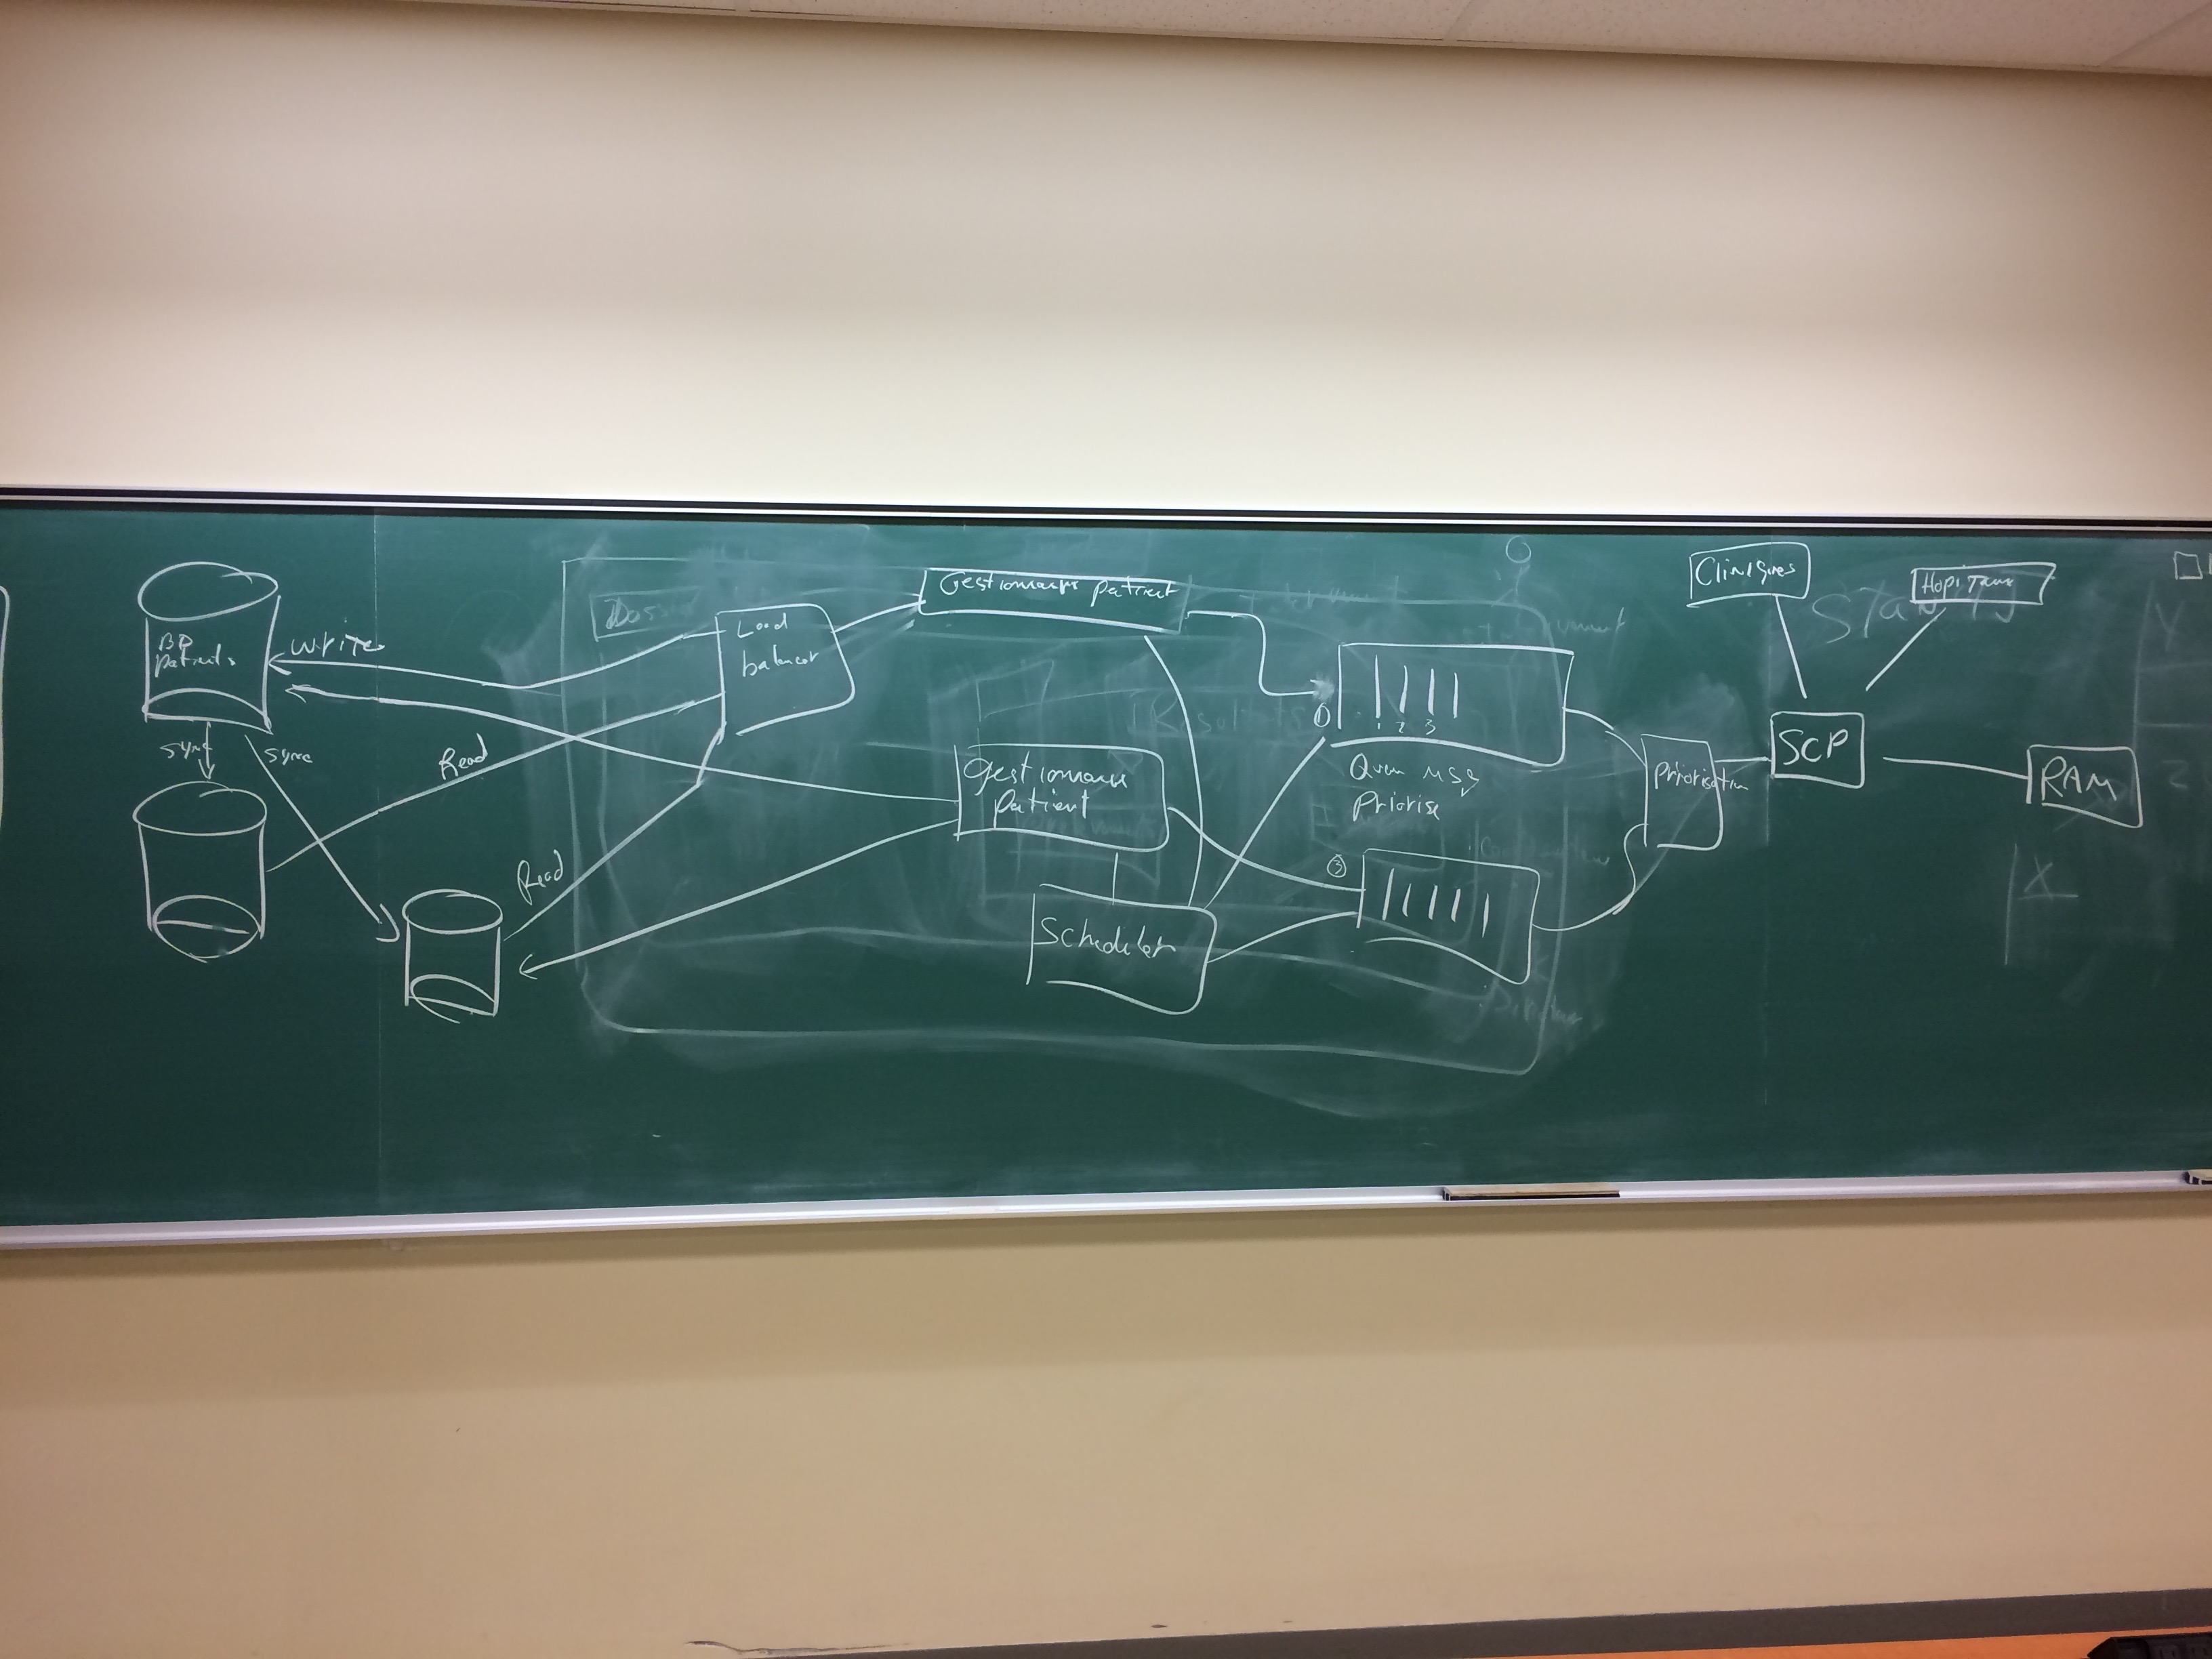 BD
patients
write
sync
sync
Read
Read
Load
balancer
Gestionnaire patient
Gestionnaire
patient
Scheduler
1
1 2 3
Queue MSg
Priorise
Priorisation
Cliniques
Hopitaux
SCP
RAM
X